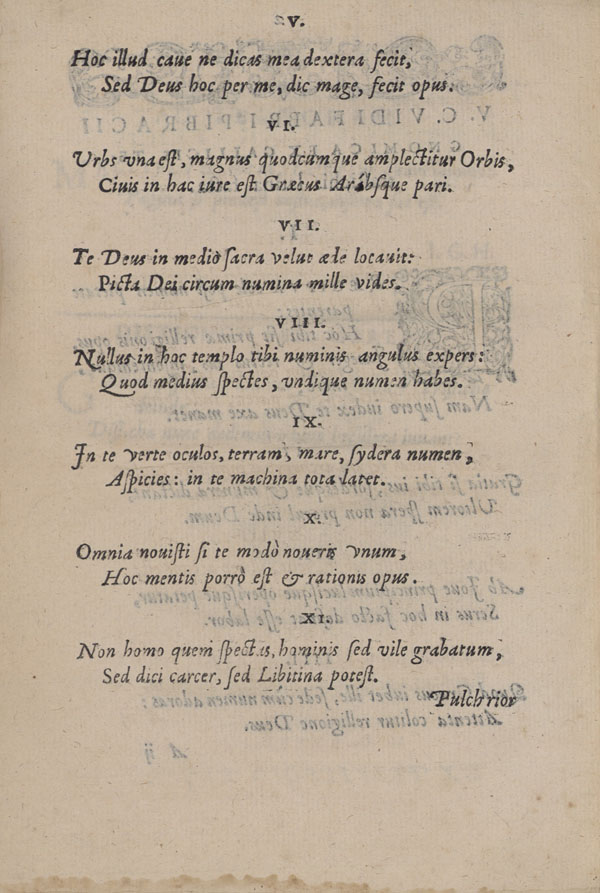 V.
Hoc illud caue ne dicas mea dextera fecit,
Sed Deus hoc per me, dic mage, fecit opus.
VI.
Vrbs vna est, magnus quodcumque amplectitur Orbis,
Ciuis in hac iure est Græcus Arabsque pari.
VII.
Te Deus in mediò sacra velut æde locauit:
Picta Dei circum numina mille vides.
VIII.
Nullus in hoc templo tibi numinis angulus expers:
Quod medius spectes, vndique numen habes.
IX.
In te verte oculos, terram, mare, sydera numen,
Aspicies: in te machina tota latet.
X.
Omnia nouisti si te modò noueris vnum,
Hoc mentis porrò est & rationis opus.
XI.
Non homo quem spectas, hominis sed vile grabatum,
Sed dici carcer, sed Libitina potest.
Pulchrior